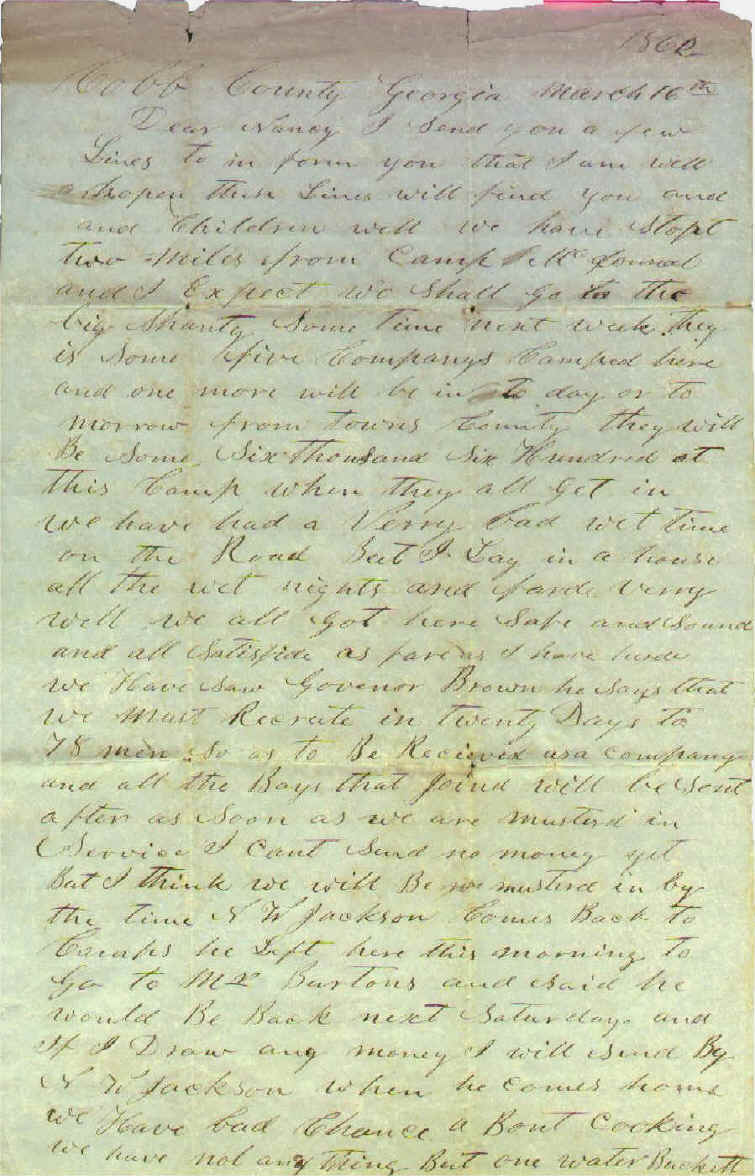 1862
Cobb County Georgia March 16th
Dear Nancy I Send you a few
Lines to in form you that I am well
a hopen thes Lines will find you and
and Children well we have Stopt
two miles from Camp McDonal
and I Expect we Shall go to the
big Shanty Some time next week they
is Some five Companys Camped here
and one more will be in to day or to
morrow from towns County they will
Be Some Six thousand Six Hundred at
this Camp when they all Get in
we have had a Verry bad wet time
on the Road But I Lay in a house
all the wet nights and farde verry
well we all Got here Safe and Sound
and all Satisfide as fare as I have herde
we Have Saw Govenor Brown he Says that
we Must Recrute in twenty Days to
78 men So as to Be Recieved as a company
and all the Boys that Joind will be Sent
after as Soon as we are musterd in
Service I Cant Send no money yet
But I think we will Be musterd in by
the time N W Jackson Comes Back to
Camps he Left here this morning to
Go to Mr Burtons and Said he
would Be Back next Saturday and
If I Draw any money I will Send By
N W Jackson when he comes home
we Have bad Chance a Bout Cooking
we have not any thing But one water Buckett